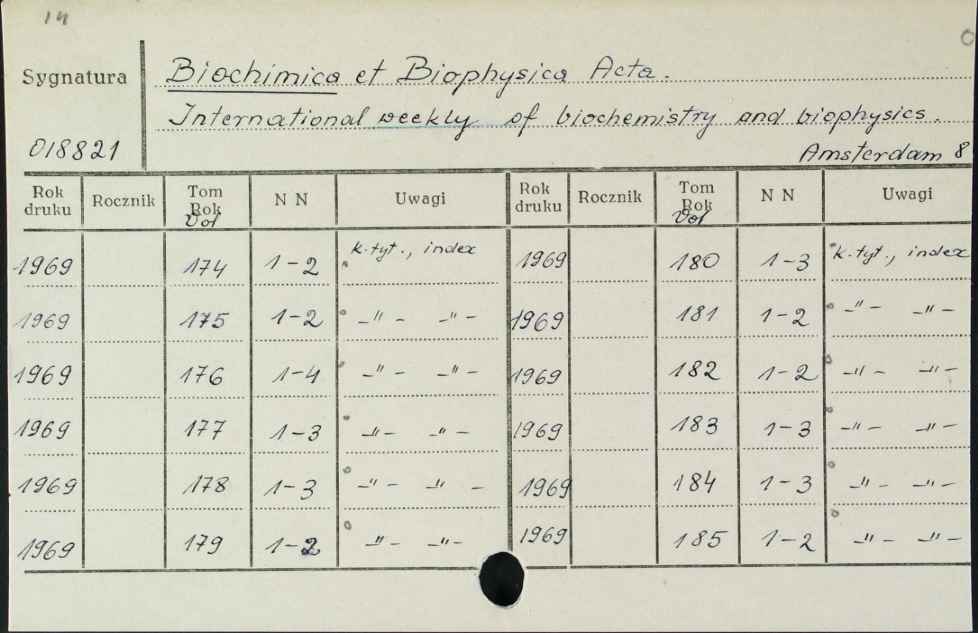 14
Sygnatura
Biochimica et Biophysica Acta.
International weekly of biochemistry and biophysics.
018821
Amsterdam 8
Rok druku Rocznik Tom Rok Vol N N Uwagi Rok druku Rocznik Tom Rok Vol N N Uwagi
1969 174 1-2 k. tyt., index 1969 180 1-3 k. tyt., index
1969 175 1-2 -"- -"- 1969 181 1-2 -"- -"-
1969 176 1-4 -"- -"- 1969 182 1-2 -"- -"-
1969 177 1-3 -"- -"- 1969 183 1-3 -"- -"-
1969 178 1-3 -"- -"- 1969 184 1-3 -"- -"-
1969 179 1-2 -"- -"- 1969 185 1-2 -"- -"-